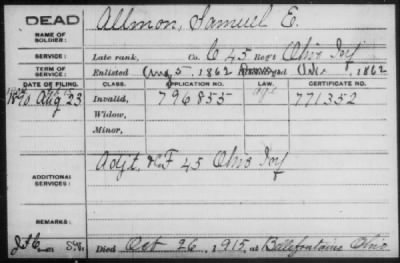 DEAD
NAME OF SOLDIER: Allmon, Samuel E.
SERVICE: Late rank, Co. C 45 Reg't Ohio Inf
TERM OF SERVICE: Enlisted Aug 5, 1862, 1862
DATE OF FILING. CLASS. APPLICATION NO. LAW. CERTIFICATE NO.
1890 Aug 23 Invalid, 796855 771352
Widow,
Minor,
ADDITIONAL SERVICES: Adjt. & F 45 Ohio Inf
REMARKS:
Died Oct 26, 1915, at Bellefontaine Ohio